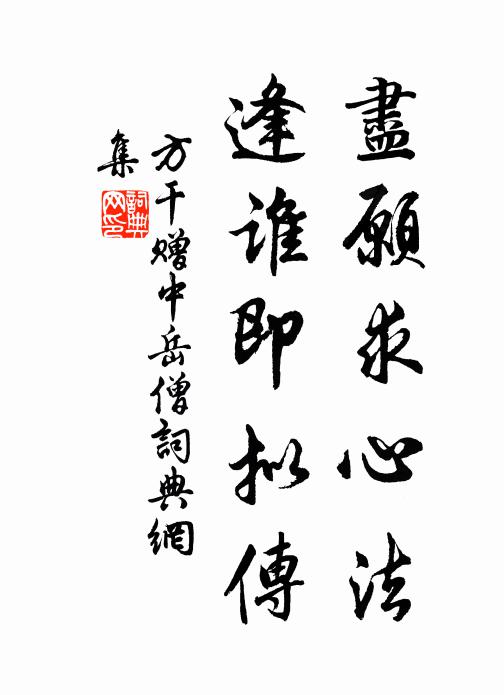 盡願求心法
逢誰即拟傳
方干赠中岳僧詞典網
集
詞典网印